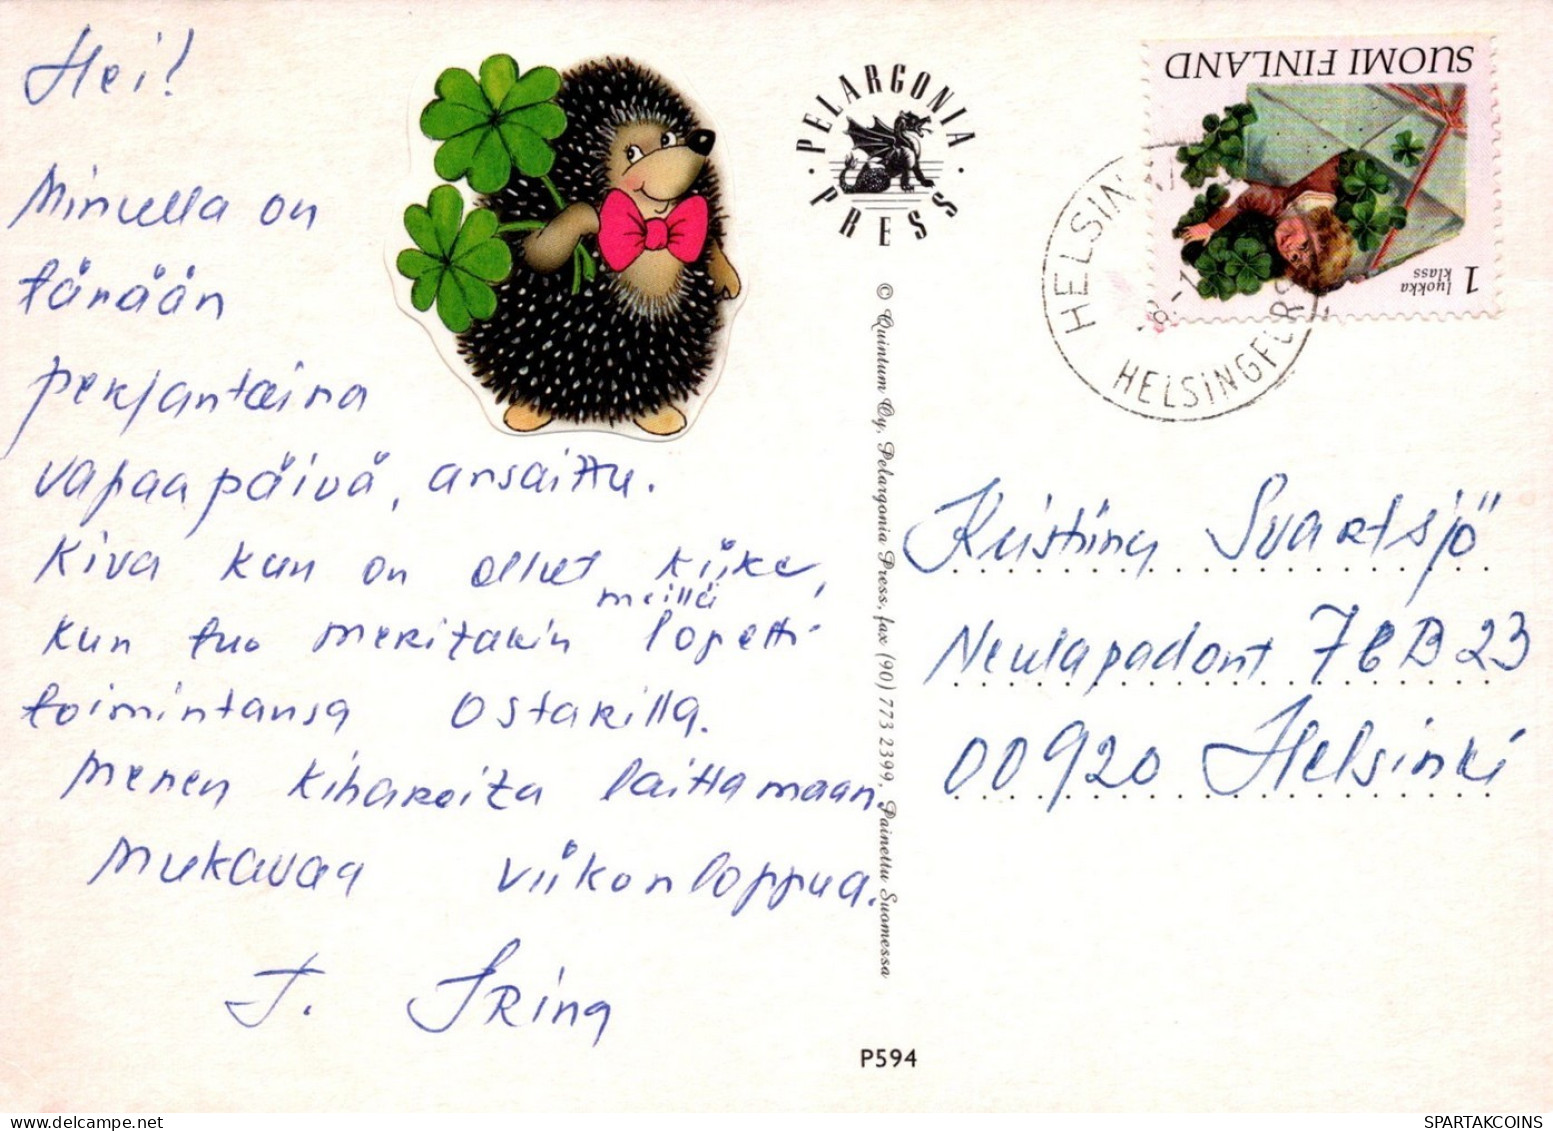 Hei!
Minulla on
tänään
perjantaina
vapaapäivä, ansaittu.
Kiva kun on ollut kiike,
meillä
kun tuo meritakin lopetti
toimintansa Ostarilla.
Menen kiharoita laittamaan.
Mukavaa viikonloppua.
T. Irina
PELARGONIA
PRESS
© Quintum Oy, Pelargonia Press, fax (90) 773 2399, Painettu Suomessa
P594
SUOMI FINLAND
1 luokka
klass
HELSIN
HELSINGFORS
Kristiina Svartsjö
Neulapadont 7 B 23
00920 Helsinki
SPARTAKCOINS.COM